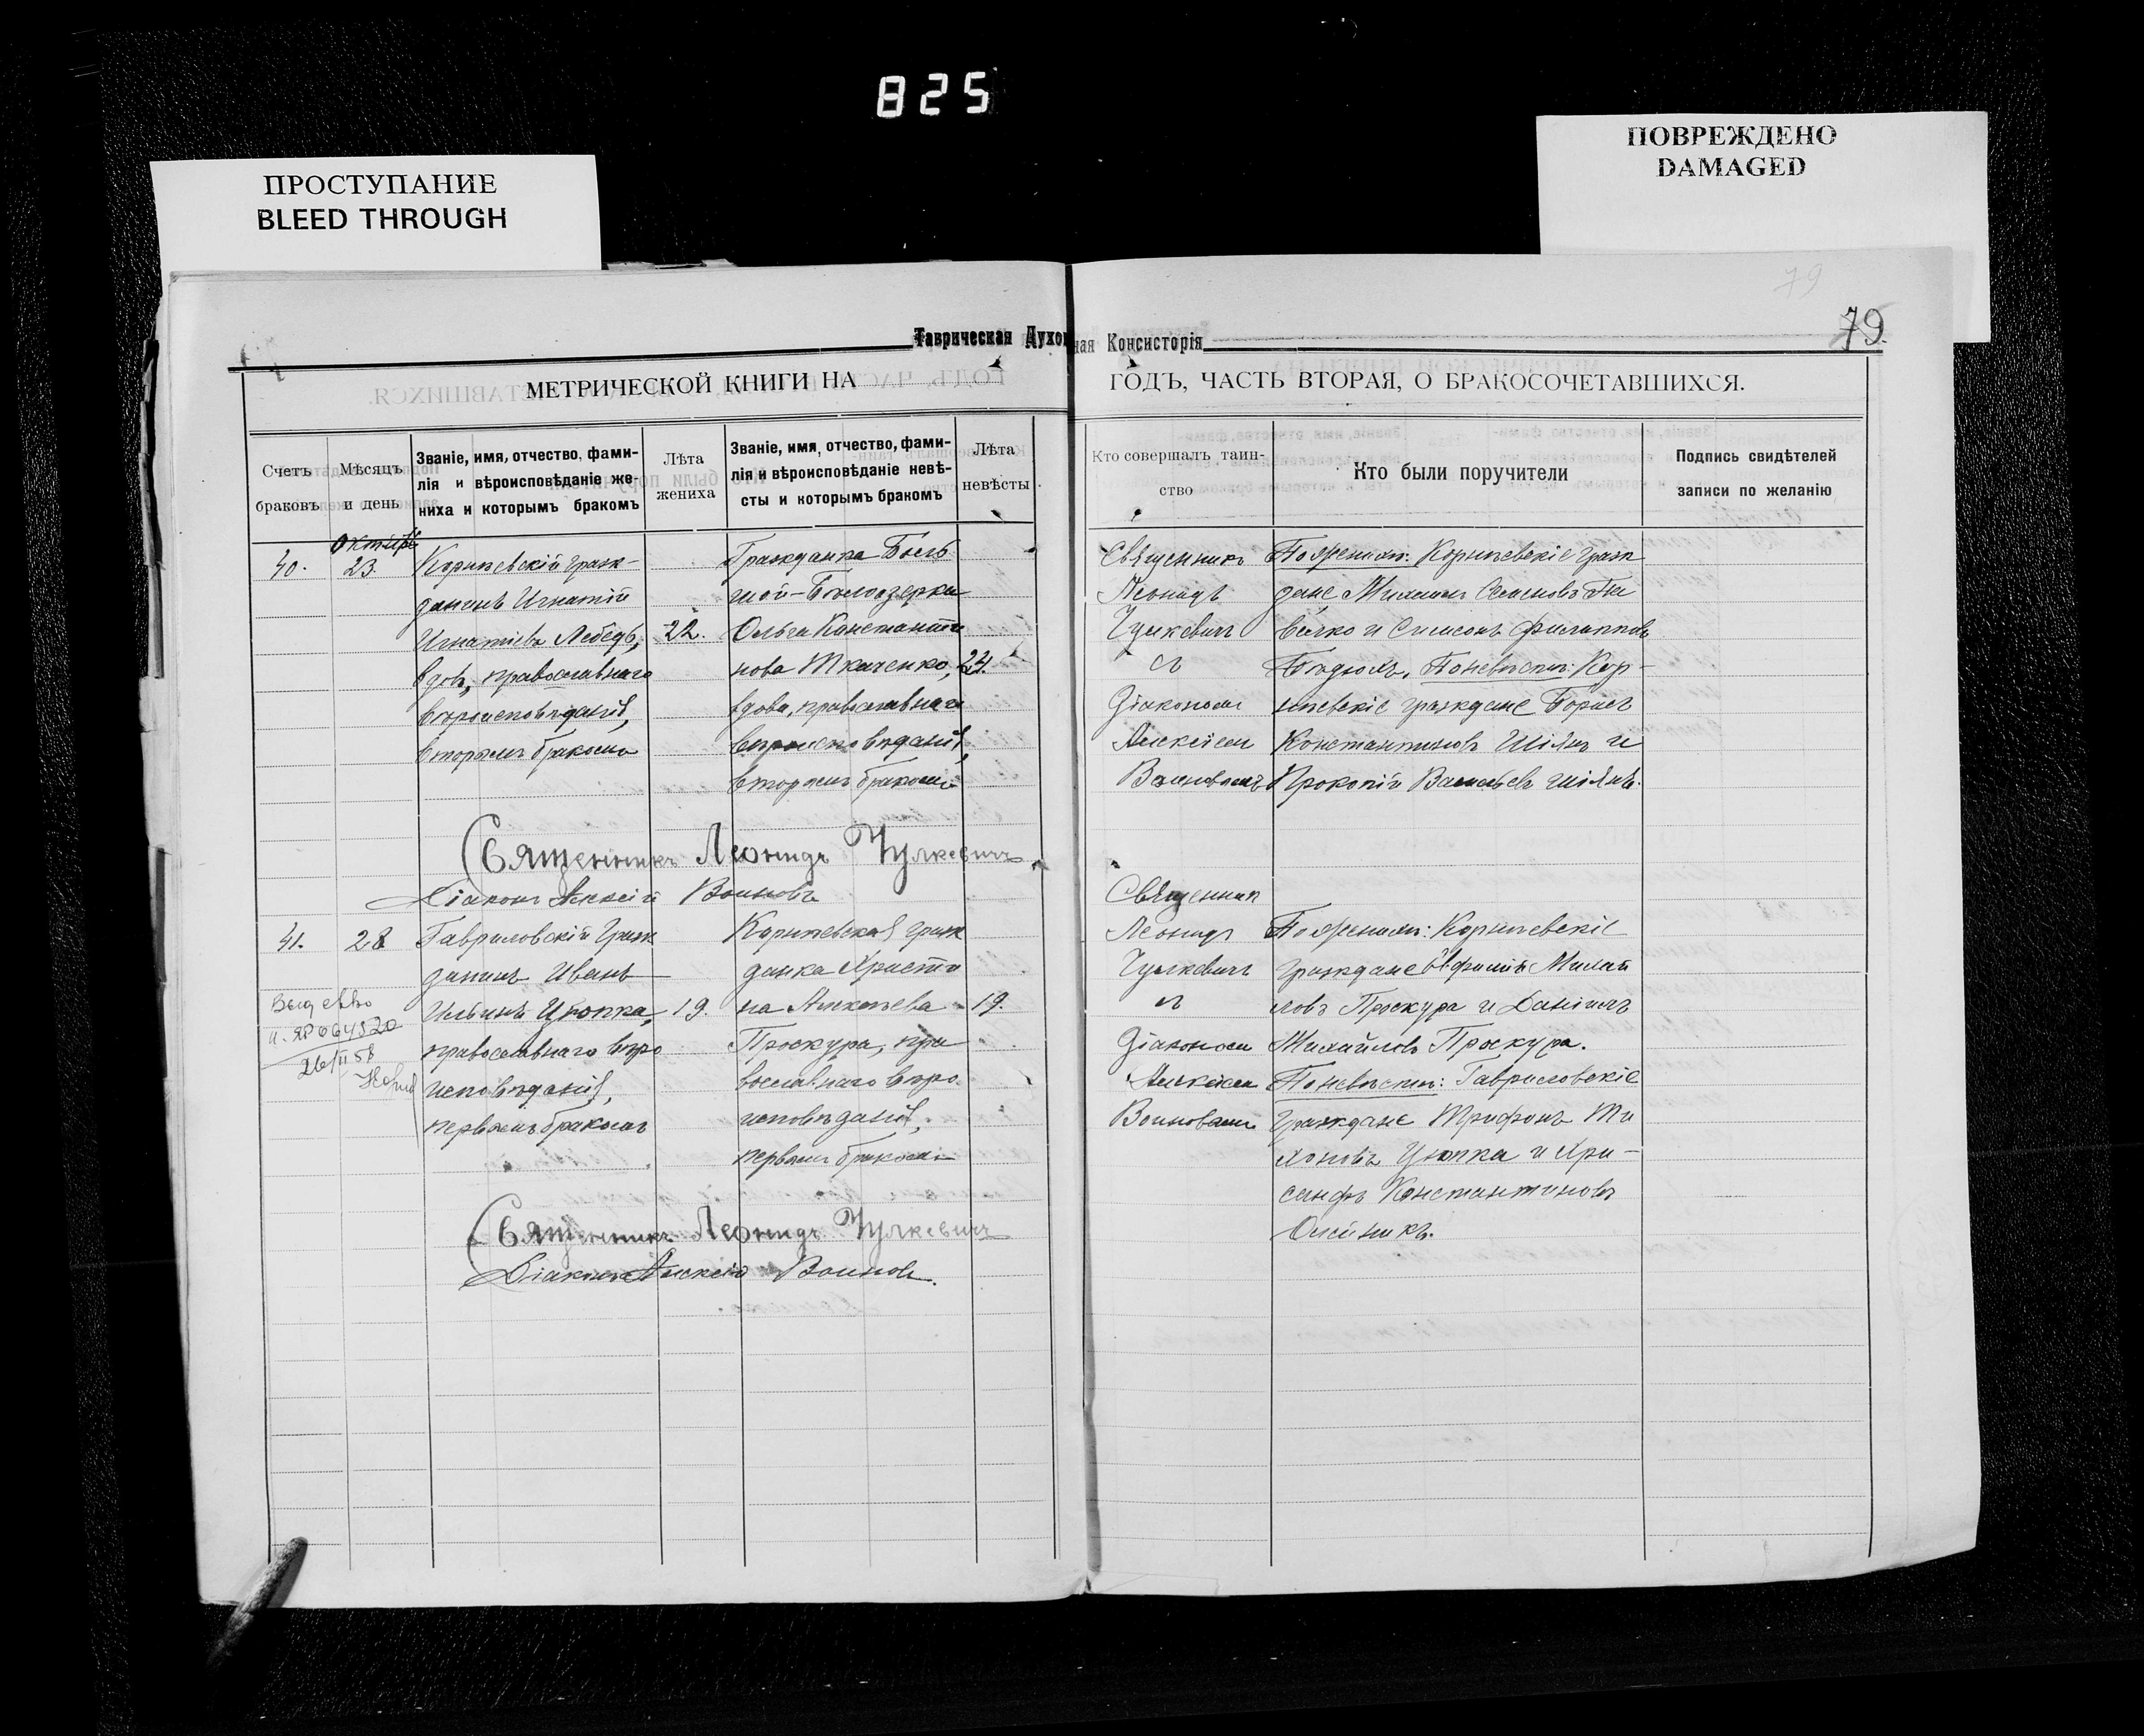 825
ПРОСТУПАНИЕ
BLEED THROUGH
ПОВРЕЖДЕНО
DAMAGED
79
79.
Таврическая Духовная Консисторія
МЕТРИЧЕСКОЙ КНИГИ НА ГОДЪ, ЧАСТЬ ВТОРАЯ, О БРАКОСОЧЕТАВШИХСЯ.
Счетъ
браковъ
Мѣсяцъ
и день
Званіе, имя, отчество, фами-
лія и вѣроисповѣданіе же-
ниха и которымъ бракомъ
Лѣта
жениха
Званіе, имя, отчество, фами-
лія и вѣроисповѣданіе невѣ-
сты и которымъ бракомъ
Лѣта
невѣсты
Кто совершалъ таин-
ство
Кто были поручители
Подпись свидѣтелей
записи по желанію
40.
Октябрь
23.
Корытевскій граж-
данинъ Игнатій
Игнатіевъ Лебедь,
вдовъ, православнаго
вѣроисповѣданія,
вторымъ бракомъ
22.
Гражданка
Бѣлозерки
Ольга Константи
нова Ткаченко,
вдова, православнаго
вѣроисповѣданія,
вторымъ бракомъ
24.
Священникъ
Леонидъ
Чулкевичъ
съ
Діакономъ
Алексіем
Воиновымъ
По женихѣ: Корытевскіе граж
дане Михаилъ
и Симеонъ Филипповъ
По невѣстѣ: Кор-
ытевскіе граждане Борисъ
Константиновъ Шіянъ и
Прокопій Васильевъ Шіянъ.
Священникъ Леонидъ Чулкевичъ
Діаконъ Алексій Воиновъ
41.
28
Гавриловскій граж
данинъ Иванъ
Ильинъ Цюпка,
православнаго вѣро
исповѣданія,
первымъ бракомъ
19.
Корытевская граж
данка Христи
на Алексѣева
Проскура, пра
вославнаго вѣро
исповѣданія,
первымъ бракомъ
19.
Священник
Леонидъ
Чулкевичъ
съ
Діакономъ
Алексіем
Воиновымъ
По женихѣ: Корытевскіе
граждане Евфимій Михай
ловъ Проскура и Даніилъ
Михайловъ Проскура.
По невѣстѣ: Гавриловскіе
граждане Трифонъ Ти
хоновъ Цюпка и Хри-
санфъ Константиновъ
Олейникъ.
26/II 58
Священникъ Леонидъ Чулкевичъ
Діаконъ Алексій Воиновъ.